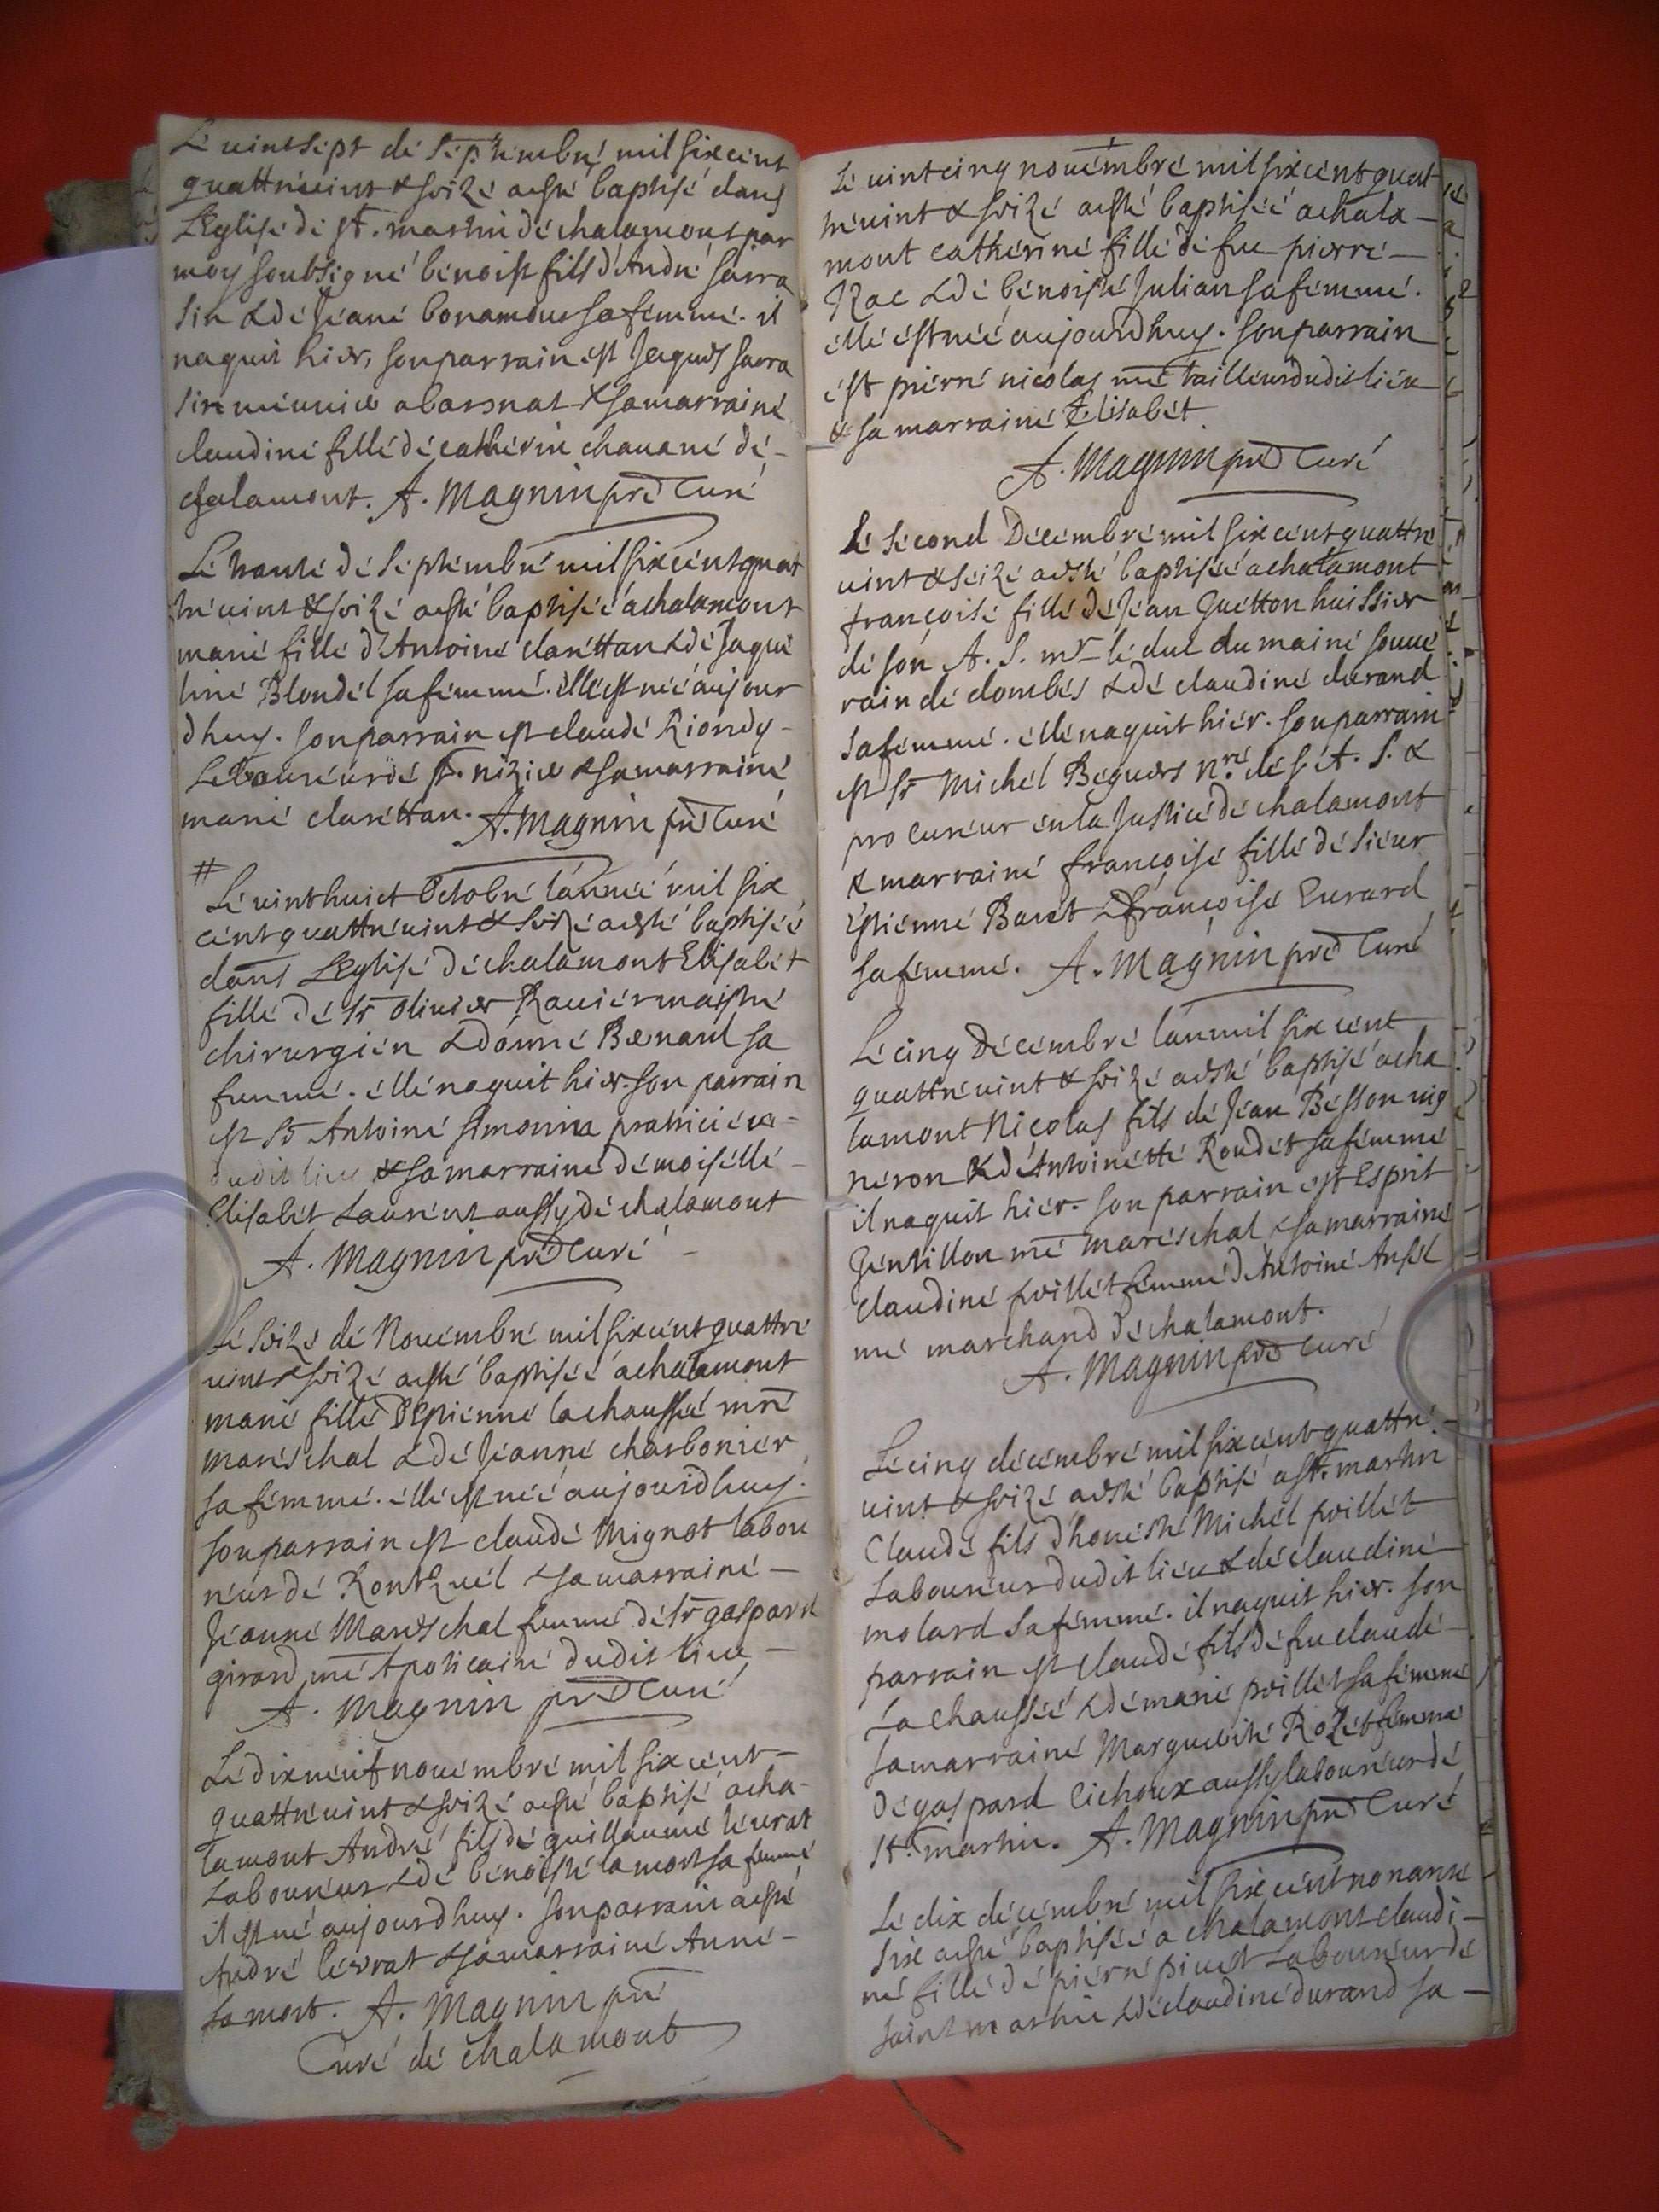 Le vintsept de Septembre mil six cent
quattrevint & seize a esté baptisé dans
L'Eglise de st. martin de chalamont par
moy soubsigné benoist fils d'André sarra
sin & de Jeane bonamour sa femme. il
naquit hier, son parrain est Jaques sarra
sin meunier a & sa marraine
claudine fille de catherin chauane de -
chalamont. A. Magnin pre Curé
Le trante de Septembre mil six cent quat
trevint & seize a esté baptisée a chalamont
marie fille d'Antoine clarettan & de Jaque
line Blondel sa femme. elle est née aujour
dhuy. son parrain est claude Riondy -
Laboureur de st. nizier & sa marraine
marie clarettan. A. Magnin pre Curé
#
Le vinthuict Octobre l'année mil six
cent quattrevint & seize a esté baptisée
dans L'Eglise de chalamont Elisabet
fille de Sr Olivier Rauier maistre
chirurgien & d'anne Benard sa
femme. elle naquit hier. son parrain
est Sr Antoine simonin praticien -
dudit lieu & sa marraine demoiselle -
Elisabet Laurent aussy de chalamont
A. Magnin pre Curé -
Le seize de Nouembre mil six cent quattre
vint & seize a esté baptisée a chalamont
marie fille d'Estienne lachaussée mre
mareschal & de Jeanne charbonier
sa femme. elle est née aujourdhuy.
son parrain est claude Mignot labou
reur de & sa marraine -
Jeanne Mareschal femme de Sr gaspard
girard me Apoticaire dudit lieu -
A. Magnin pre Curé
Le dixneuf nouembre mil six cent -
quattrevint & seize a esté baptisé a cha-
lamont André fils de guillaume leurat
Laboureur & de benoiste lamort sa femme
il est né aujourdhuy. son parrain a esté
André leurat & sa marraine Anne -
lamort. A. Magnin pre
Curé de chalamont
Le vintcinq nouembre mil six cent quat
trevint & seize a esté baptisée a chala -
mont catherine fille de feu pierre -
& de benoiste Julian sa femme.
elle est née aujourdhuy. son parrain
est pierre nicolas me tailleur dudit lieu
& sa marraine Elisabet
A. Magnin pre Curé
Le second Decembre mil six cent quattre
vint & seize a esté baptisée a chalamont
françoise fille de Jean Guetton huissier
de son A. S. mr le duc du maine souue
rain de dombes & de claudine durand
sa femme. elle naquit hier. son parrain
est Sr Michel Beguers nre de s. A. S. &
procureur en la Justice de chalamont
& marraine françoise fille de sieur
Estienne Buret & françoise Eurard
sa femme. A. Magnin pre Curé
Le cinq Decembre l'an mil six cent
quattrevint & seize a esté baptisé a cha
lamont Nicolas fils de Jean Besson vig
neron & de Antoinette Roudet sa femme
il naquit hier. son parrain est Esprit
Jentillon me mareschal & sa marraine
claudine poillet femme d'Antoine Ansel
me marchand de chalamont.
A. Magnin pre Curé
Le cinq decembre mil six cent quattre -
vint & seize a esté baptisé a st. martin
Claude fils d'honeste Michel poillet
Laboureur dudit lieu & de claudine
molard sa femme. il naquit hier. son
parrain est claude fils de feu claude -
La chaussée & de marie poillet sa femme
sa marraine Marguerite Rozet femme
de gaspard Cichoux aussy laboureur de
st. martin. A. Magnin pre Curé
Le dix decembre mil six cent nonante
six a esté baptisée a chalamont claudi -
ne fille de pierre piuet Laboureur de
saint martin & de claudine durand sa -